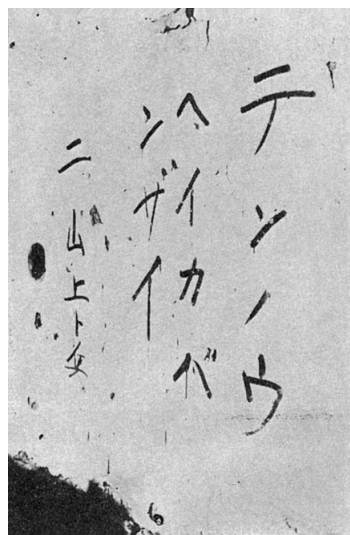 テンノウ
ヘイカバ
ンザイ
二 山上ト